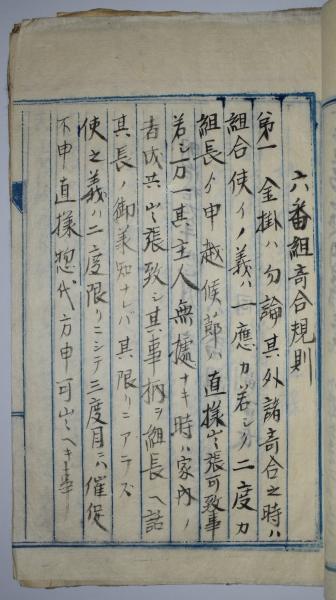 六番組寄合規則
第一 金掛ハ勿論其外諸寄合之時ハ
組合使イノ義ハ一應カ若シクハ二度カ
組長ゟ申越候節ハ直様出張可致事
若シ万一其主人無據ナキ時ハ家内ノ
者成共出張致シ其事柄ヲ組長ヘ話
其長ノ御承知ナレバ其限リニアラズ
使之義ハ二度限リニシテ三度目ニハ催促
不申直様惣代方申可出ヘキ事